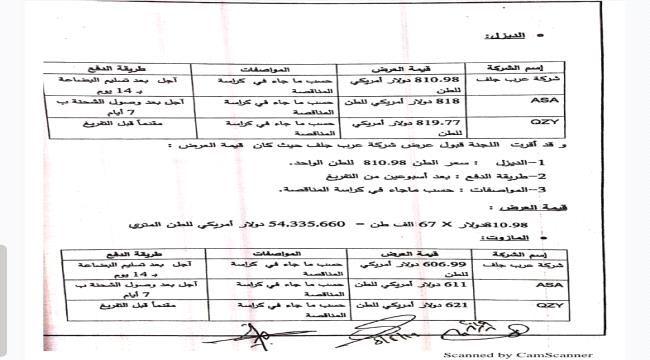 • الديزل:
إسم الشركة قيمة العرض المواصفات طريقة الدفع
شركة عرب جلف 810.98 دولار أمريكي للطن حسب ما جاء في كراسة المناقصة آجل بعد تسليم البضاعة بـ 14 يوم
ASA 818 دولار أمريكي للطن حسب ما جاء في كراسة المناقصة آجل بعد وصول الشحنة ب 7 أيام
QZY 819.77 دولار أمريكي للطن حسب ما جاء في كراسة المناقصة مقدماً قبل التفريغ
و قد أقرت اللجنة قبول عرض شركة عرب جلف حيث كان قيمة العرض :
1-الديزل : سعر الطن 810.98 للطن الواحد.
2-طريقة الدفع : بعد أسبوعين من التفريغ
3-المواصفات : حسب ماجاء في كراسة المناقصة.
قيمة العرض :
810.98دولار X 67 الف طن = 54.335.660 دولار أمريكي للطن المتري
• المازوت:
إسم الشركة قيمة العرض المواصفات طريقة الدفع
شركة عرب جلف 606.99 دولار أمريكي للطن حسب ما جاء في كراسة المناقصة آجل بعد تسليم البضاعة بـ 14 يوم
ASA 611 دولار أمريكي للطن حسب ما جاء في كراسة المناقصة آجل بعد وصول الشحنة ب 7 أيام
QZY 621 دولار أمريكي للطن حسب ما جاء في كراسة المناقصة مقدماً قبل التفريغ
Scanned by CamScanner